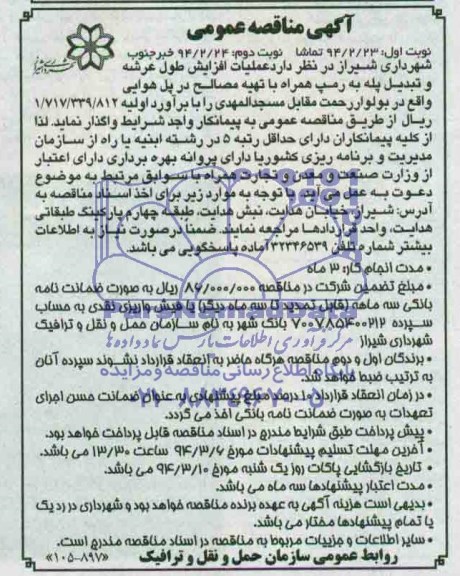 آگهی مناقصه عمومی
نوبت اول: ۹۴/۲/۲۳ تماشا نوبت دوم: ۹۴/۲/۲۴ خبرجنوب
شهرداری شیراز در نظر دارد عملیات افزایش طول عرشه
و تبدیل پله به رمپ همراه با تهیه مصالح در پل هوایی
واقع در بولوار رحمت مقابل مسجدالمهدی را با برآورد اولیه ۱/۷۱۷/۳۳۹/۸۱۲
ریال از طریق مناقصه عمومی به پیمانکار واجد شرایط واگذار نماید. لذا
از کلیه پیمانکاران دارای حداقل رتبه ۵ در رشته ابنیه یا راه از سازمان
مدیریت و برنامه ریزی کشور یا دارای پروانه بهره برداری دارای اعتبار
از وزارت صنعت، معدن و تجارت همراه با سوابق مرتبط به موضوع
دعوت به عمل می‌آید با توجه به موارد زیر برای اخذ اسناد مناقصه به
آدرس: شیراز، خیابان هدایت، نبش هدایت، طبقه چهارم پارکینگ طبقاتی
هدایت، واحد قراردادها مراجعه نمایند. ضمنا درصورت نیاز به اطلاعات
بیشتر شماره تلفن ۳۲۳۴۶۵۳۹ آماده پاسخگویی می باشد.
• مدت انجام کار: ۳ ماه
• مبلغ تضمین شرکت در مناقصه ۸۶/۰۰۰/۰۰۰ ریال به صورت ضمانت نامه
بانکی سه ماهه (قابل تمدید تا سه ماه دیگر) یا فیش واریز نقدی به حساب
سپرده ۷۰۰۷۸۵۴۰۰۲۱۲ بانک شهر به نام سازمان حمل و نقل و ترافیک
شهرداری شیراز
• برندگان اول و دوم مناقصه هرگاه حاضر به انعقاد قرارداد نشوند سپرده آنان
به ترتیب ضبط خواهد شد.
• در زمان انعقاد قرارداد ۱۰ درصد مبلغ پیشنهادی به عنوان ضمانت حسن اجرای
تعهدات به صورت ضمانت نامه بانکی اخذ می گردد.
• پیش پرداخت طبق شرایط مندرج در اسناد مناقصه قابل پرداخت خواهد بود.
• آخرین مهلت تسلیم پیشنهادات مورخ ۹۴/۳/۶ ساعت ۱۳/۳۰ می باشد.
• تاریخ بازگشایی پاکات روز یک شنبه مورخ ۹۴/۳/۱۰ می باشد.
• مدت اعتبار پیشنهادها سه ماه می باشد.
• بدیهی است هزینه آگهی به عهده برنده مناقصه خواهد بود و شهرداری در رد یک
یا تمام پیشنهادها مختار می باشد.
• سایر اطلاعات و جزییات مربوط به مناقصه در اسناد مناقصه مندرج است.
روابط عمومی سازمان حمل و نقل و ترافیک «۱۰۵-۸۹۷»
ParsNamadData
مرکز فرآوری اطلاعات پارس نماد داده ها
پایگاه اطلاع رسانی مناقصه و مزایده